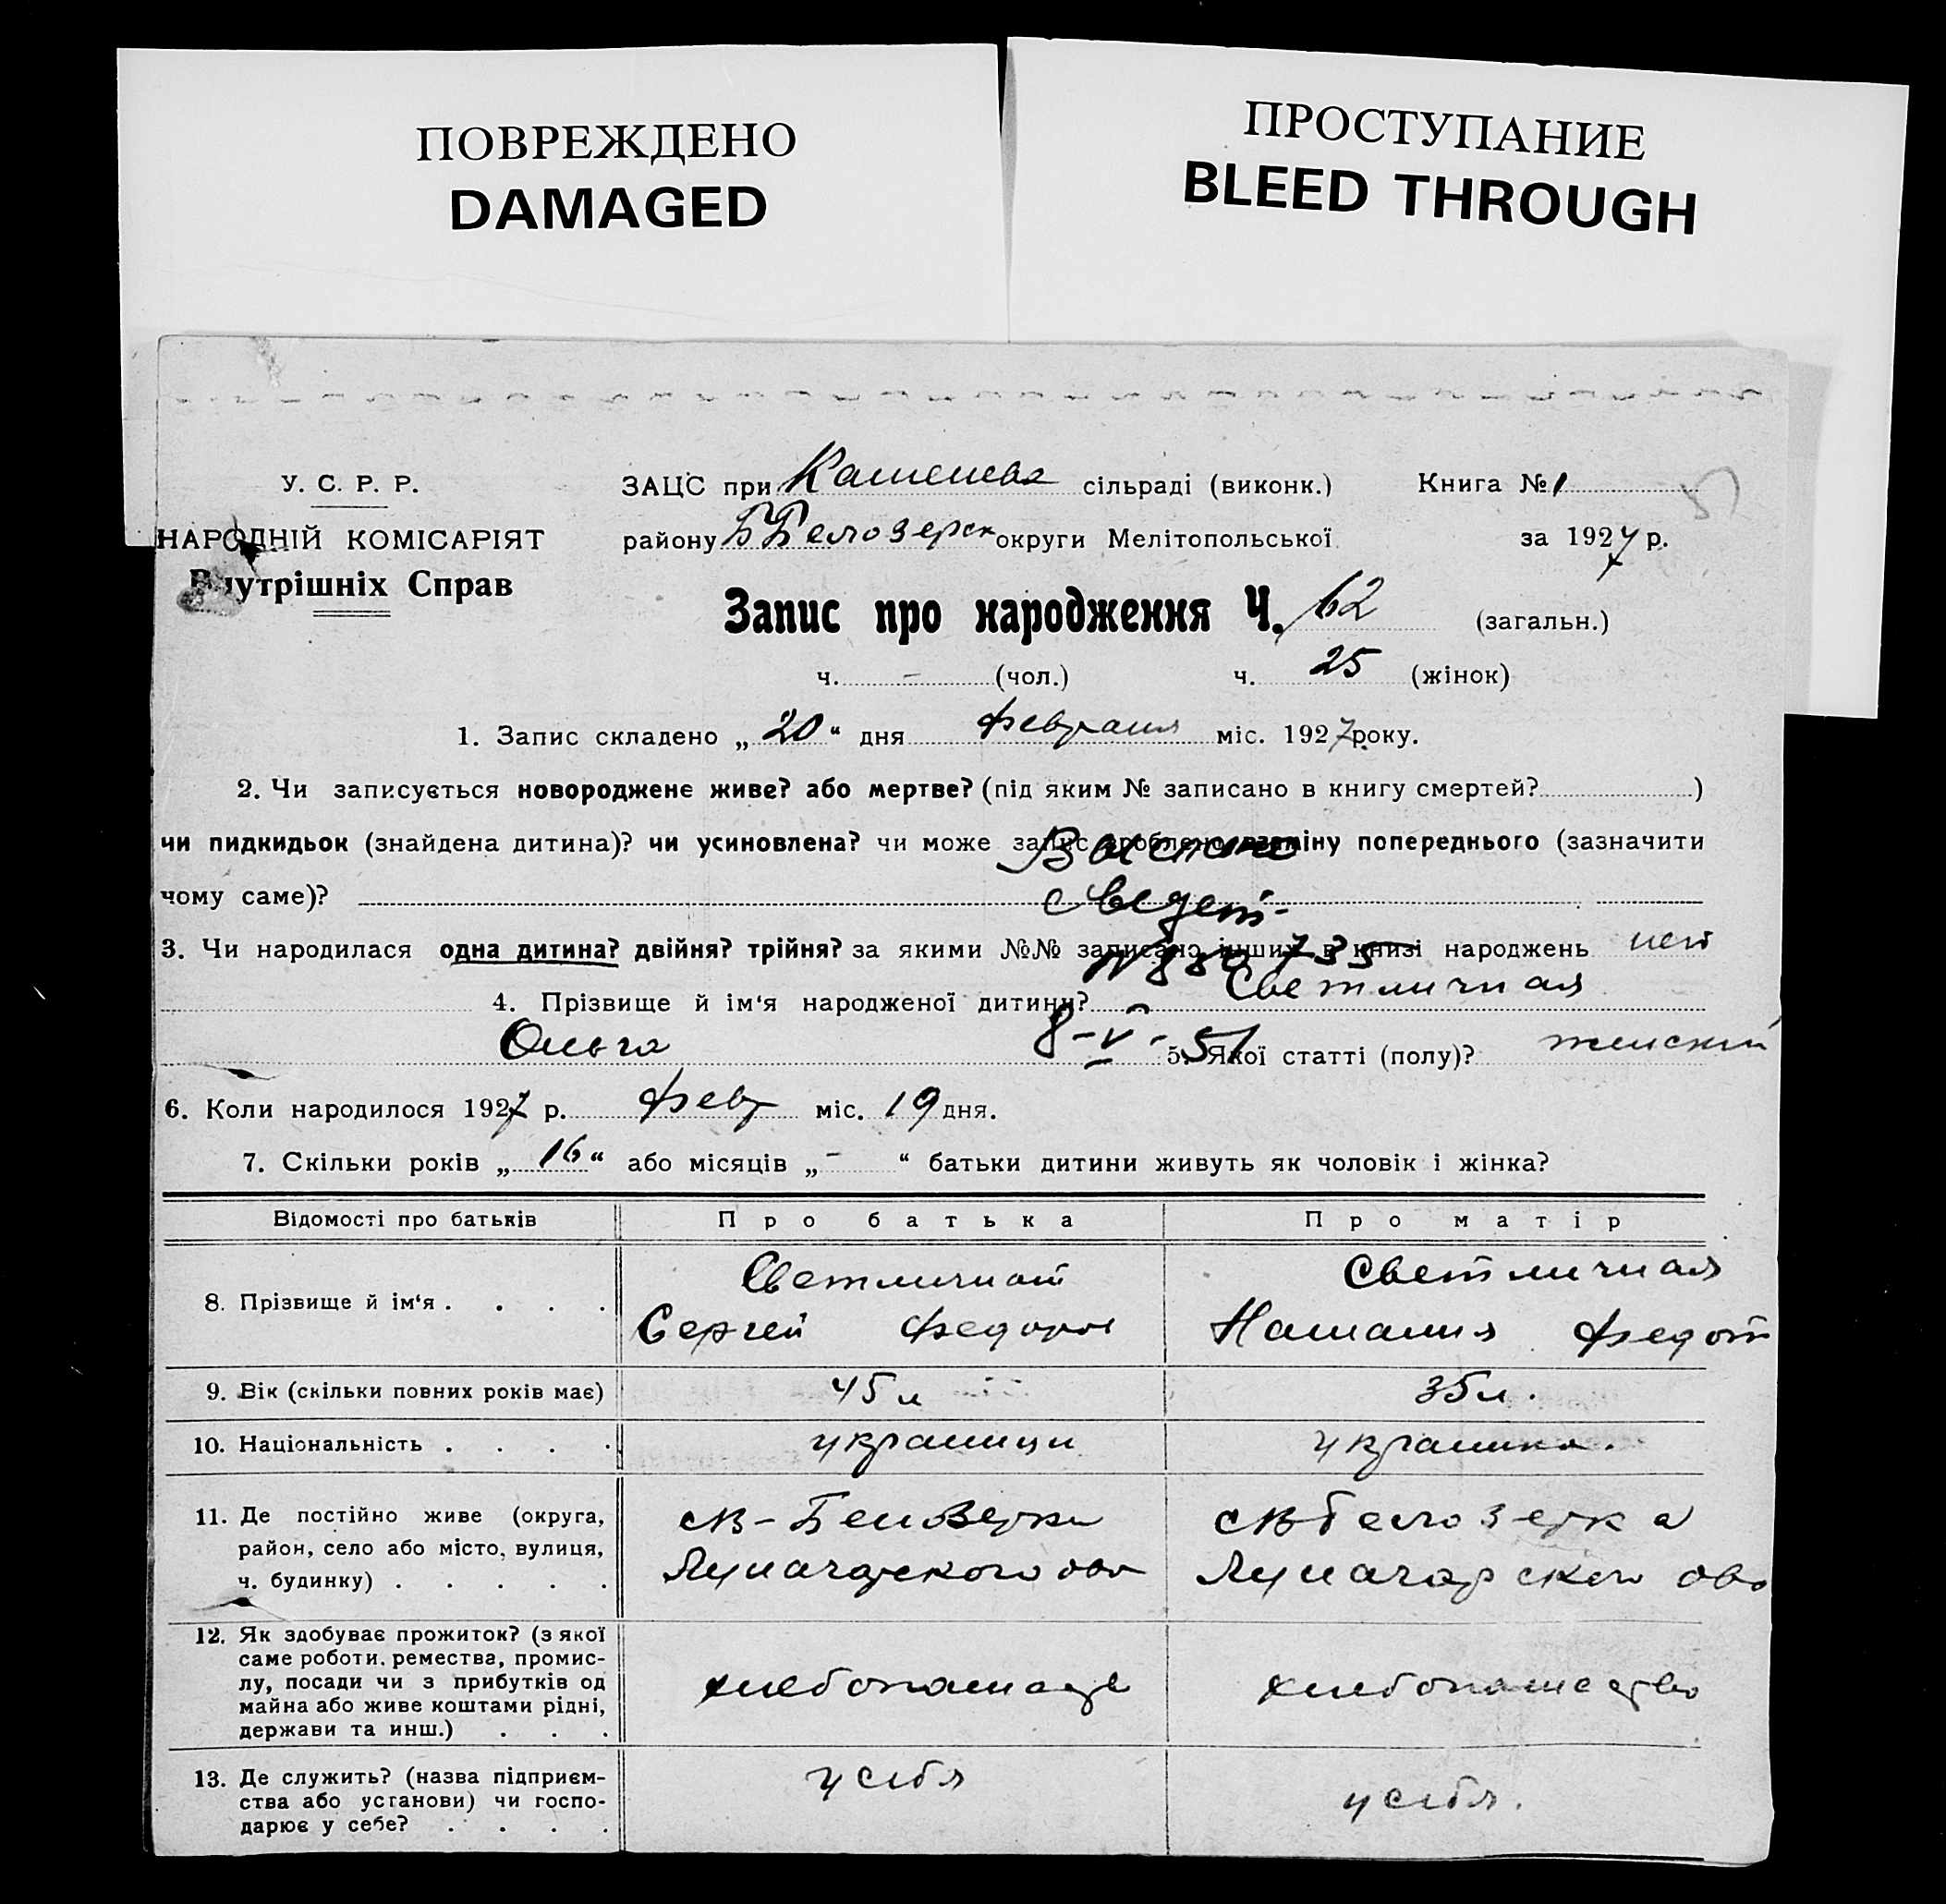 ПОВРЕЖДЕНО
DAMAGED
ПРОСТУПАНИЕ
BLEED THROUGH
У. С. Р. Р.
НАРОДНІЙ КОМІСАРІЯТ
Внутрішніх Справ
ЗАЦС при сільраді (виконк.) Книга № 1
району ББелозерск округи Мелітопольської за 1927 р.
Запис про народження Ч. 62 (загальн.)
ч. - (чол.) ч. 25 (жінок)
1. Запис складено „ 20 “ дня февраля міс. 1927 року.
2. Чи записується новороджене живе? або мертве? (під яким № записано в книгу смертей? )
чи пидкидьок (знайдена дитина)? чи усиновлена? чи може запис зроблено взаміну попереднього (зазначити
чому саме)?
свидет-
3. Чи народилася одна дитина? двійня? трійня? за якими №№ записано інших в книзі народжень нет
4. Прізвище й ім‘я народженої дитини? Светличная
Ольга 8-V-51 5. Якої статті (полу)? женский
6. Коли народилося 1927 р. февр міс. 19 дня.
7. Скільки років „ 16 “ або місяців „ - “ батьки дитини живуть як чоловік і жінка?
Відомості про батьків Про батька Про матір
8. Прізвище й ім‘я . . . . Светличной Светличная
Сергей Федоров Наталия Федот
9. Вік (скільки повних років має) 45 л 35 л.
10. Національність . . . . украинци украинка.
11. Де постійно живе (округа,
район, село або місто, вулиця,
ч. будинку) . . . . .
с В-Белозерка
Луначарского ова
с Вбелозерка
Луначарского ово
12. Як здобуває прожиток? (з якої
саме роботи, ремества, промис-
лу, посади чи з прибутків од
майна або живе коштами рідні,
держави та инш.) . . .
хлебопашество
13. Де служить? (назва підприєм-
ства або установи) чи госпо-
дарює у себе? . . . .
у себя
у себя.